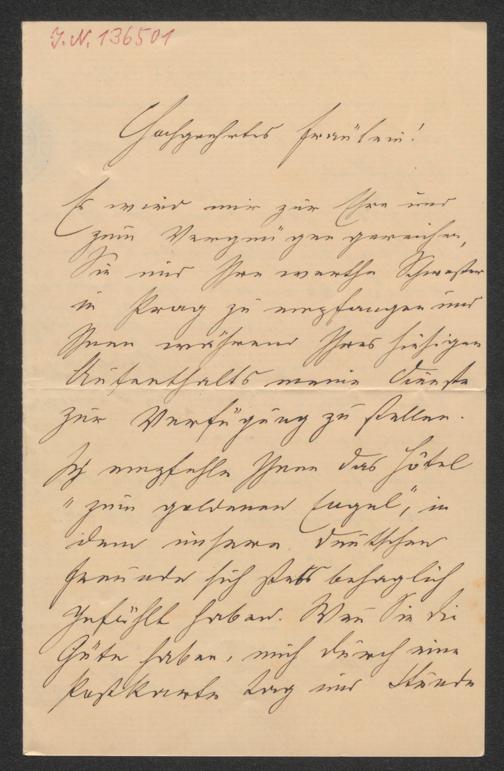 J.N. 136501
Hochgeehrtes Fräulein!
Es wird mir zur Ehre und
zum Vergnügen gereichen,
Sie und Ihre werthe Schwester
in Prag zu empfangen und
Ihnen während Ihres hiesigen
Aufenthalts meine Dienste
zur Verfügung zu stellen.
Ich empfehle Ihnen das Hôtel
"zum goldenen Engel", in
dem unsere deutschen
Freunde sich stets behaglich
gefühlt haben. Wenn Sie die
Güte haben, mich durch eine
Postkarte Tag und Stunde